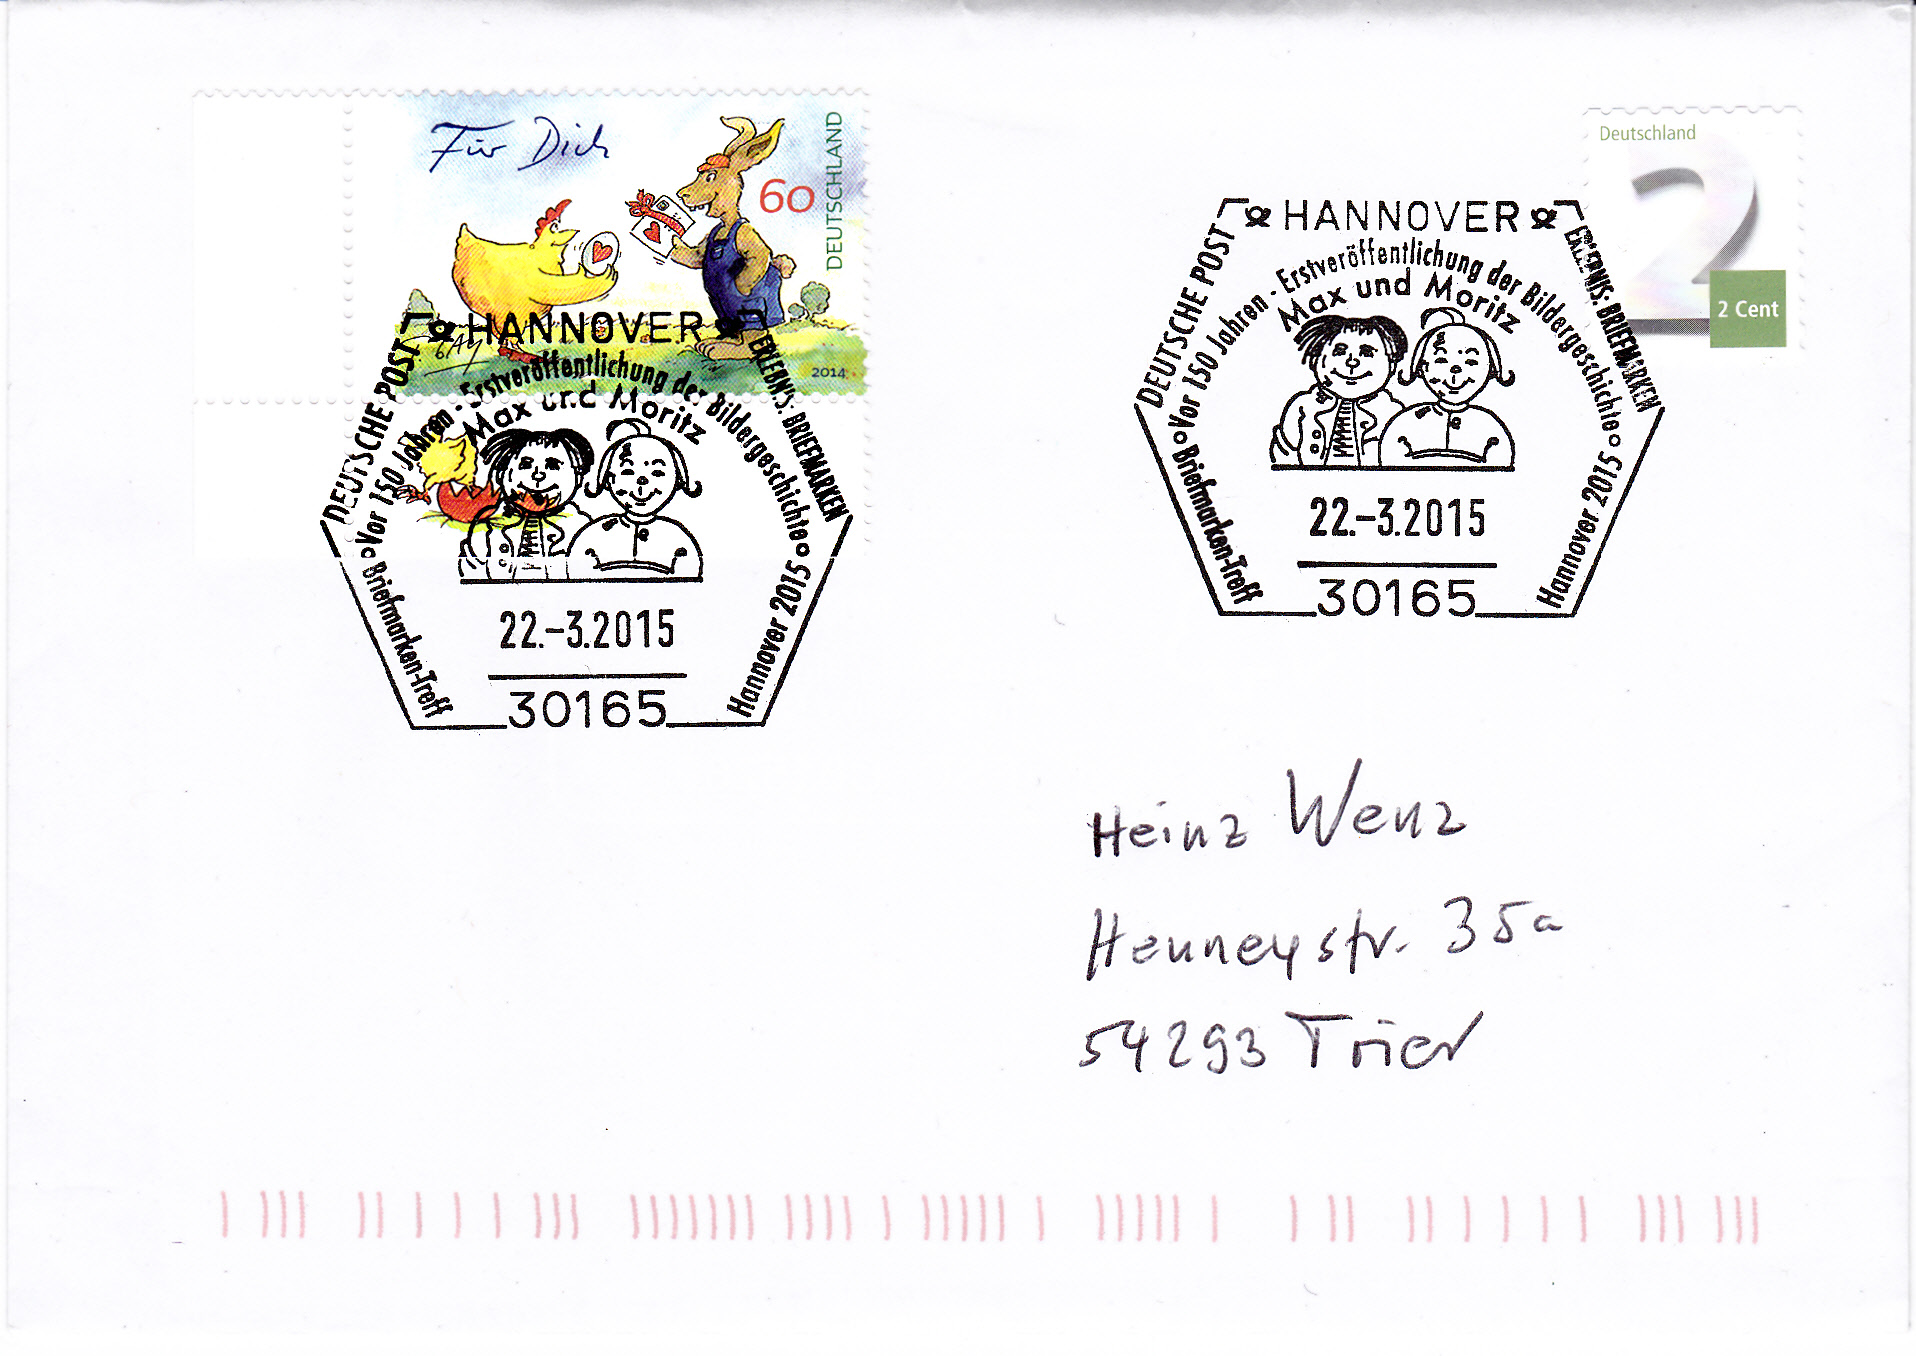 Für Dich
60
DEUTSCHLAND
2014
Deutschland
2
2 Cent
HANNOVER
DEUTSCHE POST
ERLEBNIS: BRIEFMARKEN
Vor 150 Jahren - Erstveröffentlichung der Bildergeschichte
Max und Moritz
22.-3.2015
30165
Briefmarken-Treff
Hannover 2015
HANNOVER
DEUTSCHE POST
ERLEBNIS: BRIEFMARKEN
Vor 150 Jahren - Erstveröffentlichung der Bildergeschichte
Max und Moritz
22.-3.2015
30165
Briefmarken-Treff
Hannover 2015
Heinz Wenz
Henneystr. 35a
54293 Trier